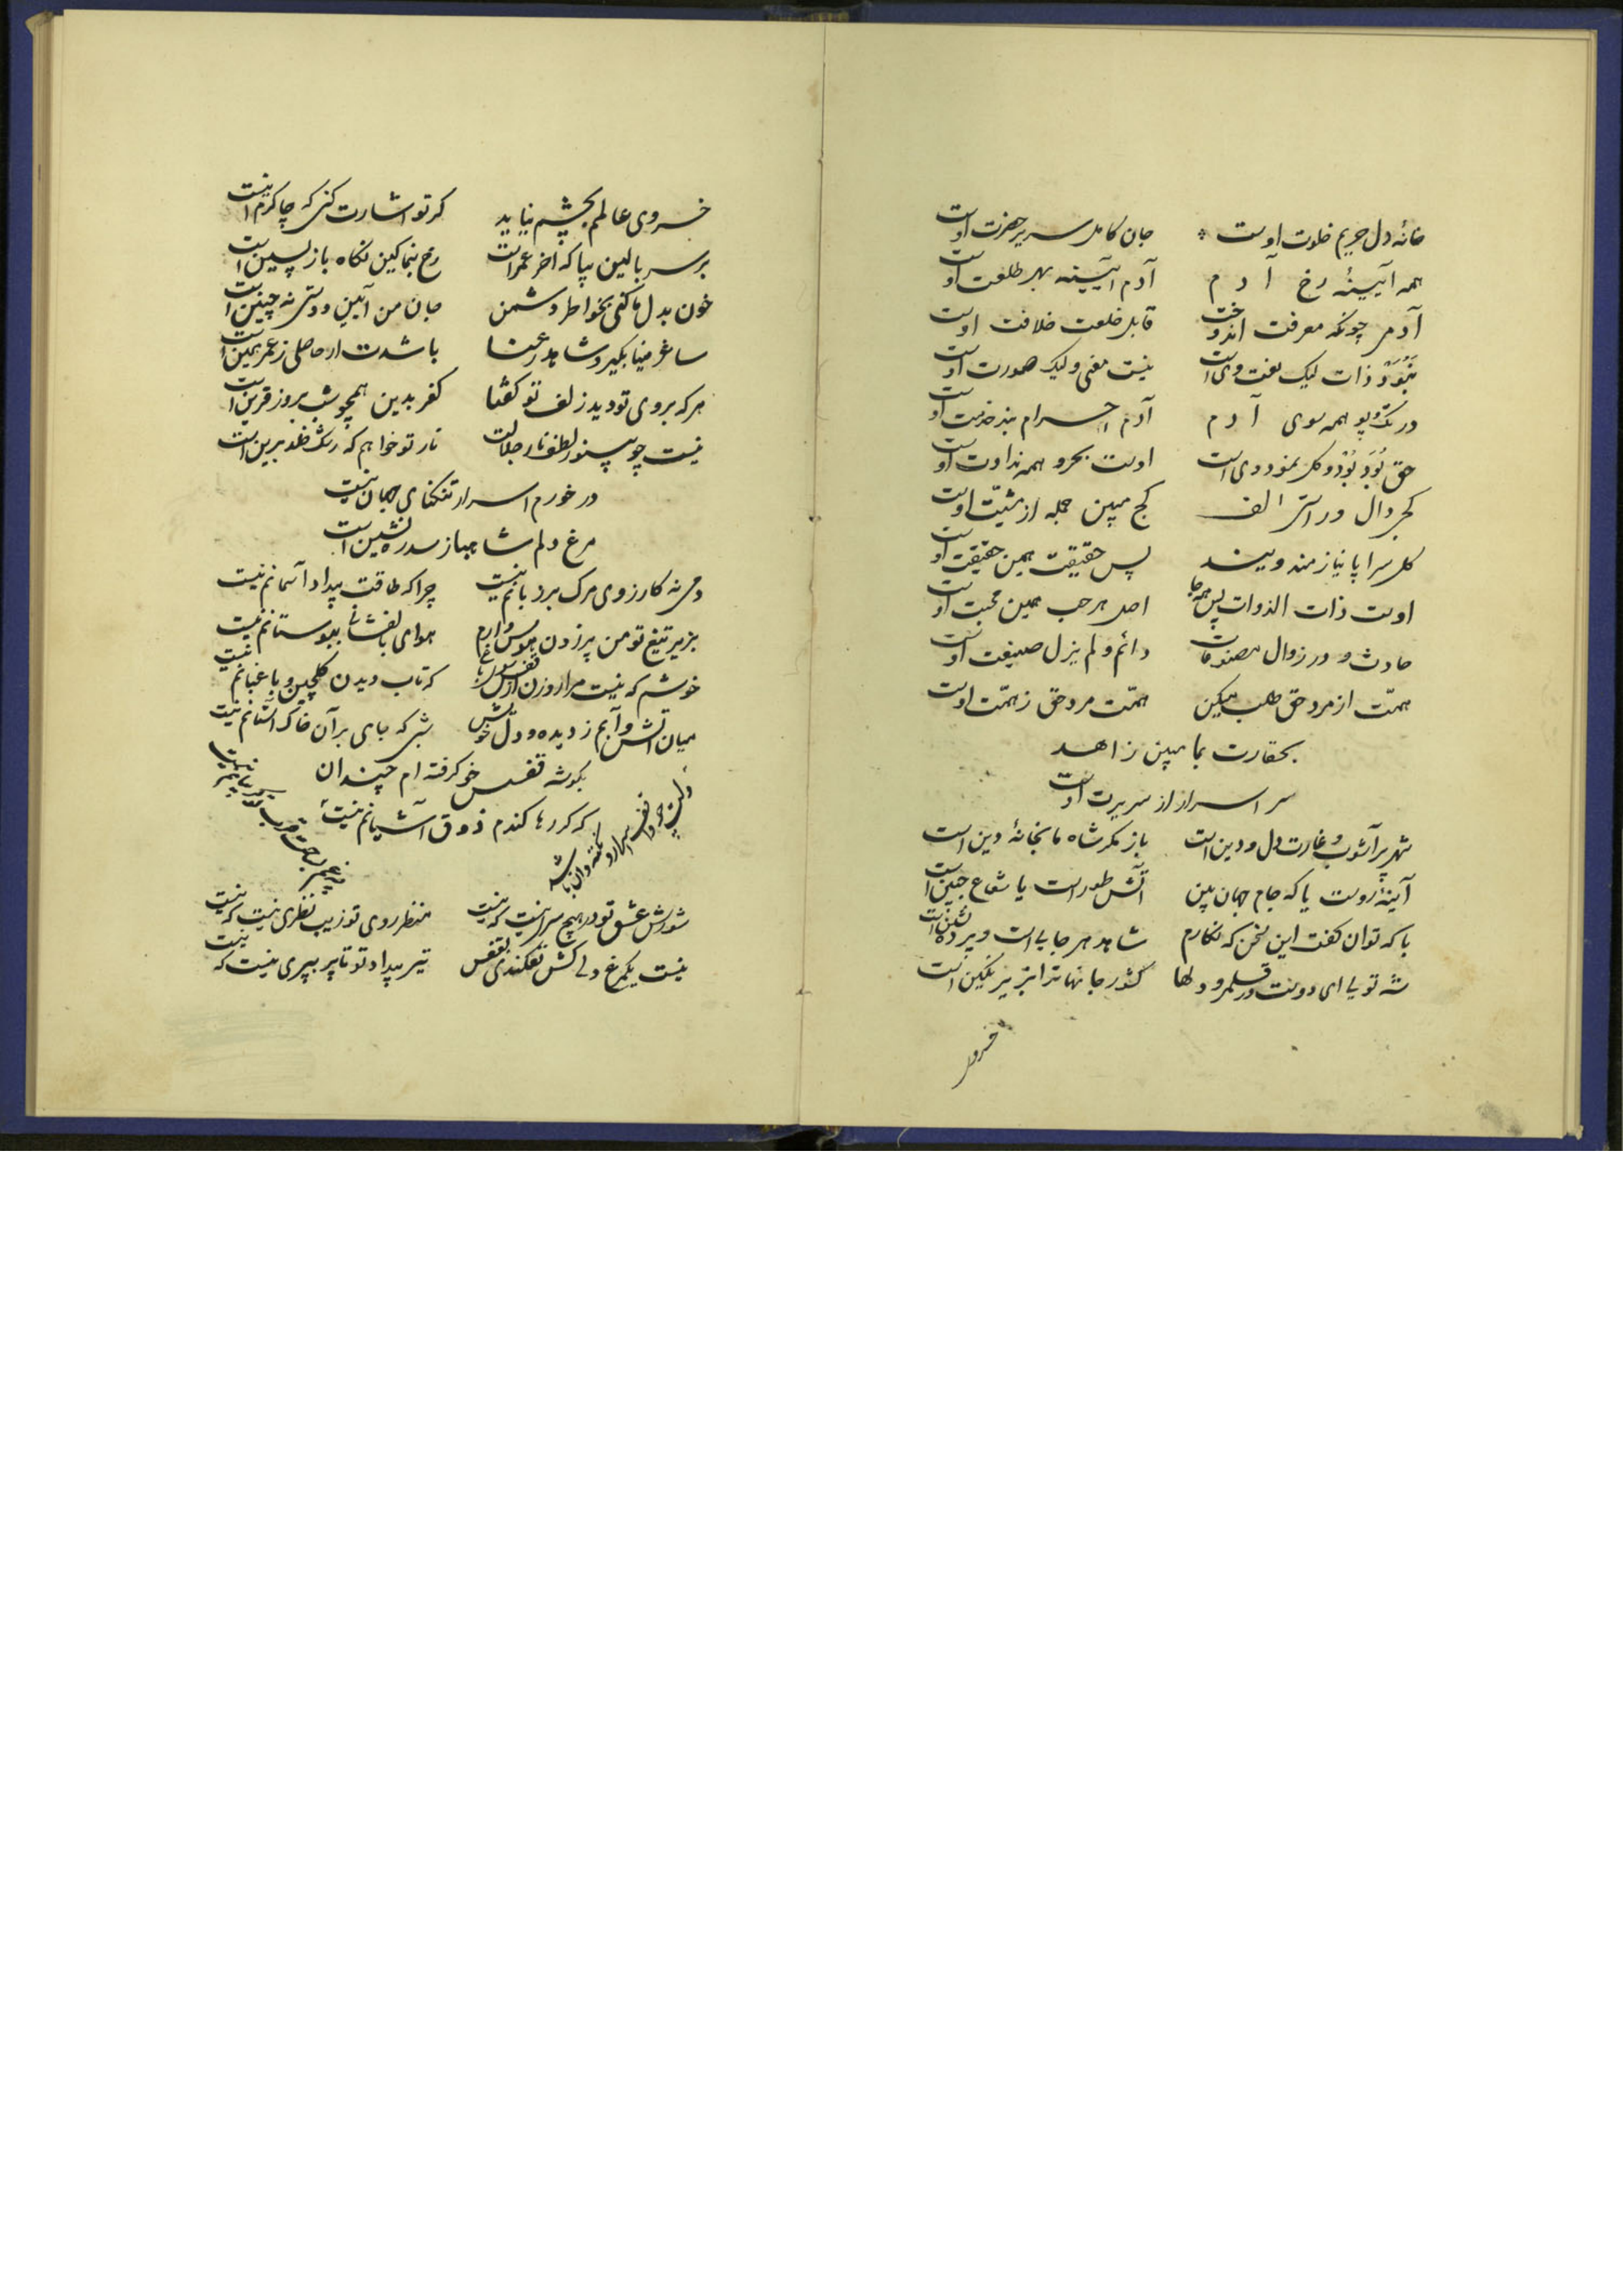 خانهٔ دل حریم خلوت اوست جان کامل سریر حضرت اوست
همه آیینهٔ رخ آدم آدم آیینه بهر طلعت اوست
آدمی چونکه معرفت اندوخت قابل خلعت خلافت اوست
نبود ذات لیک نعت وی است نیست معنی ولیک صورت اوست
در تک و پو همه سوی آدم آدم احرام بند خدمت اوست
حق بود بود و کل نمود وی است اوست بحر و همه نداوت اوست
کجی دال و راستی الف کج مبین جمله از مشیّت اوست
کل سراپا نیازمند ویند پس حقیقت همین حقیقت اوست
اوست ذات الذوات پس همه جا اصل هر حب همین محبت اوست
حادث و در زوال مصنوعات دائم و لم یزل صنیعت اوست
همّت از مرد حق طلب میکن همّت مرد حق ز همّت اوست
بحقارت بما مبین زاهد
سر اسرار از سریرت اوست
شهر پر آشوب و غارت دل و دین است باز مگر شاه ما بخانهٔ دین است
آینهٔ روست یا که جام جهان بین آتش طور است یا شعاع جبین است
با که توان گفت این سخن که نگارم شاهد هر جایی است و پرده نشین است
شه تویی ای دوست در قلمرو دلها کشور جانها ترا بزیر نگین است
خسروی
خسروی عالمم بچشم نیاید گر تو اشارت کنی که چاکرم اینست
بر سر بالین بیا که آخر عمر است رخ بنما کین نگاه بازپسین است
خون بدل ما کنی بخواطر دشمن جان من آیین دوستی نه چنین است
ساغر مینا بگیر و شاهد رعنا باشدت ار حاصلی ز عمر همین است
هر که بروی تو دید زلف تو گفتا کفر بدین همچو شب بروز قرین است
نیست چو بی نور لطف نار جلالت نار تو خواهم که رشک خلد برین است
در خورم اسرار تنگنای جهان نیست
مرغ دلم شاهباز سدره نشین است
دمی نه کارزوی مرگ بر زبانم نیست چرا که طاقت بیداد آسمانم نیست
بزیر تیغ تو من پر زدن هوس دارم هوای بال فشانی ببوستانم نیست
خوشم که نیست مرا روزن از قفس سوی باغ که تاب دیدن گلچین و باغبانم نیست
میان آتش و آبم ز دیده و دل خویش شبی که جای بر آن خاک آستانم نیست
بگوشه قفس خو گرفته ام چندان
که گر رها کندم ذوق آشیانم نیست
شورش عشق تو در هیچ سری نیست که نیست منظر روی تو زیب نظری نیست که نیست
نیست یکمرغ دلی کش نفکندی بقفس تیر بیداد تو تا پر بپری نیست که نیست